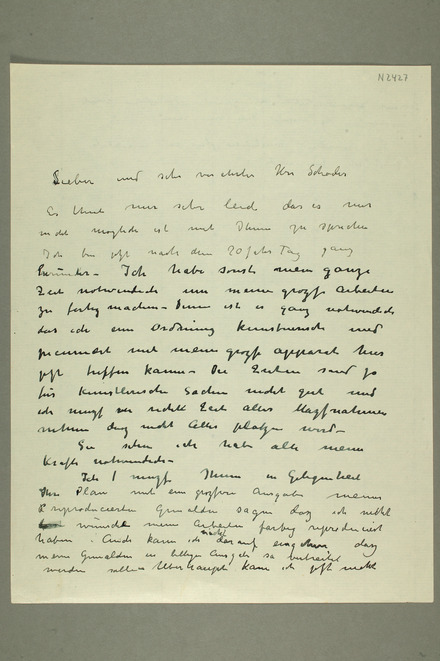 N2427
Lieber und sehr verehrter Herr Schroder
Es thut mir sehr leid das es mir
nicht möglich ist mit Ihnen zu sprechen
Ich bin jetzt nach dem 20 Tag ganz
Ich habe sonst mein ganze
Zeit notwendich um meine grozse Arbeiten
zu fertig machen – Denn ist es ganz notwendich
das ich ein Ordnung kunstnerisch und
mit mein grozse apparat hier
jetzt treffen kann – Die Zeiten sind ja
für kunstlerische Sachen nicht gut und
ich muzs zur rechte Zeit alles
nehmen daz nicht alles wird –
Sie sehen ich habe alle meine
Krafte notwendich –
Ich muzs Ihnen in Gelegenheit
Ihre Plan mit ein grozsere Ausgabe meiner
reproducierten Gemälden sagen daz ich nicht
wünsche meine Arbeiten farbig reproduciert
haben – Auch kann ich nicht darauf eingehen daz
meine Gemälden in billige Ausgabe so verbreitet
werden sollen Uberhaupt kann ich jetzt nicht